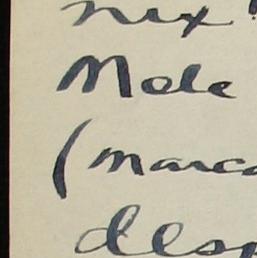 nix
Mole
(marca
desp